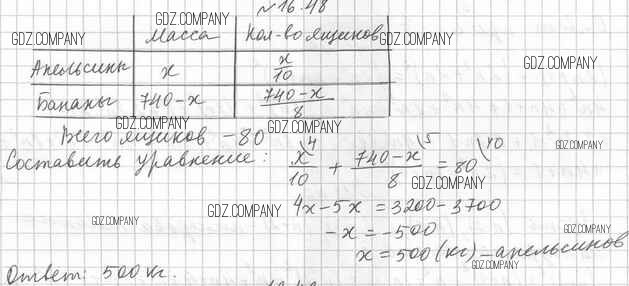 №16.48
GDZ.COMPANY
Масса Кол-во ящиков
GDZ.COMPANY GDZ.COMPANY
GDZ.COMPANY
Апельсины x x/10
Бананы 740-x 740-x/8
GDZ.COMPANY
Всего ящиков - 80
GDZ.COMPANY
Составить уравнение: x/10 \4 + 740-x/8 \5 = 80 \40
GDZ.COMPANY
GDZ.COMPANY
4x-5x = 3200-3700
GDZ.COMPANY
GDZ.COMPANY
-x = -500
GDZ.COMPANY
x = 500 (кг) - апельсинов
GDZ.COMPANY
Ответ: 500 кг.